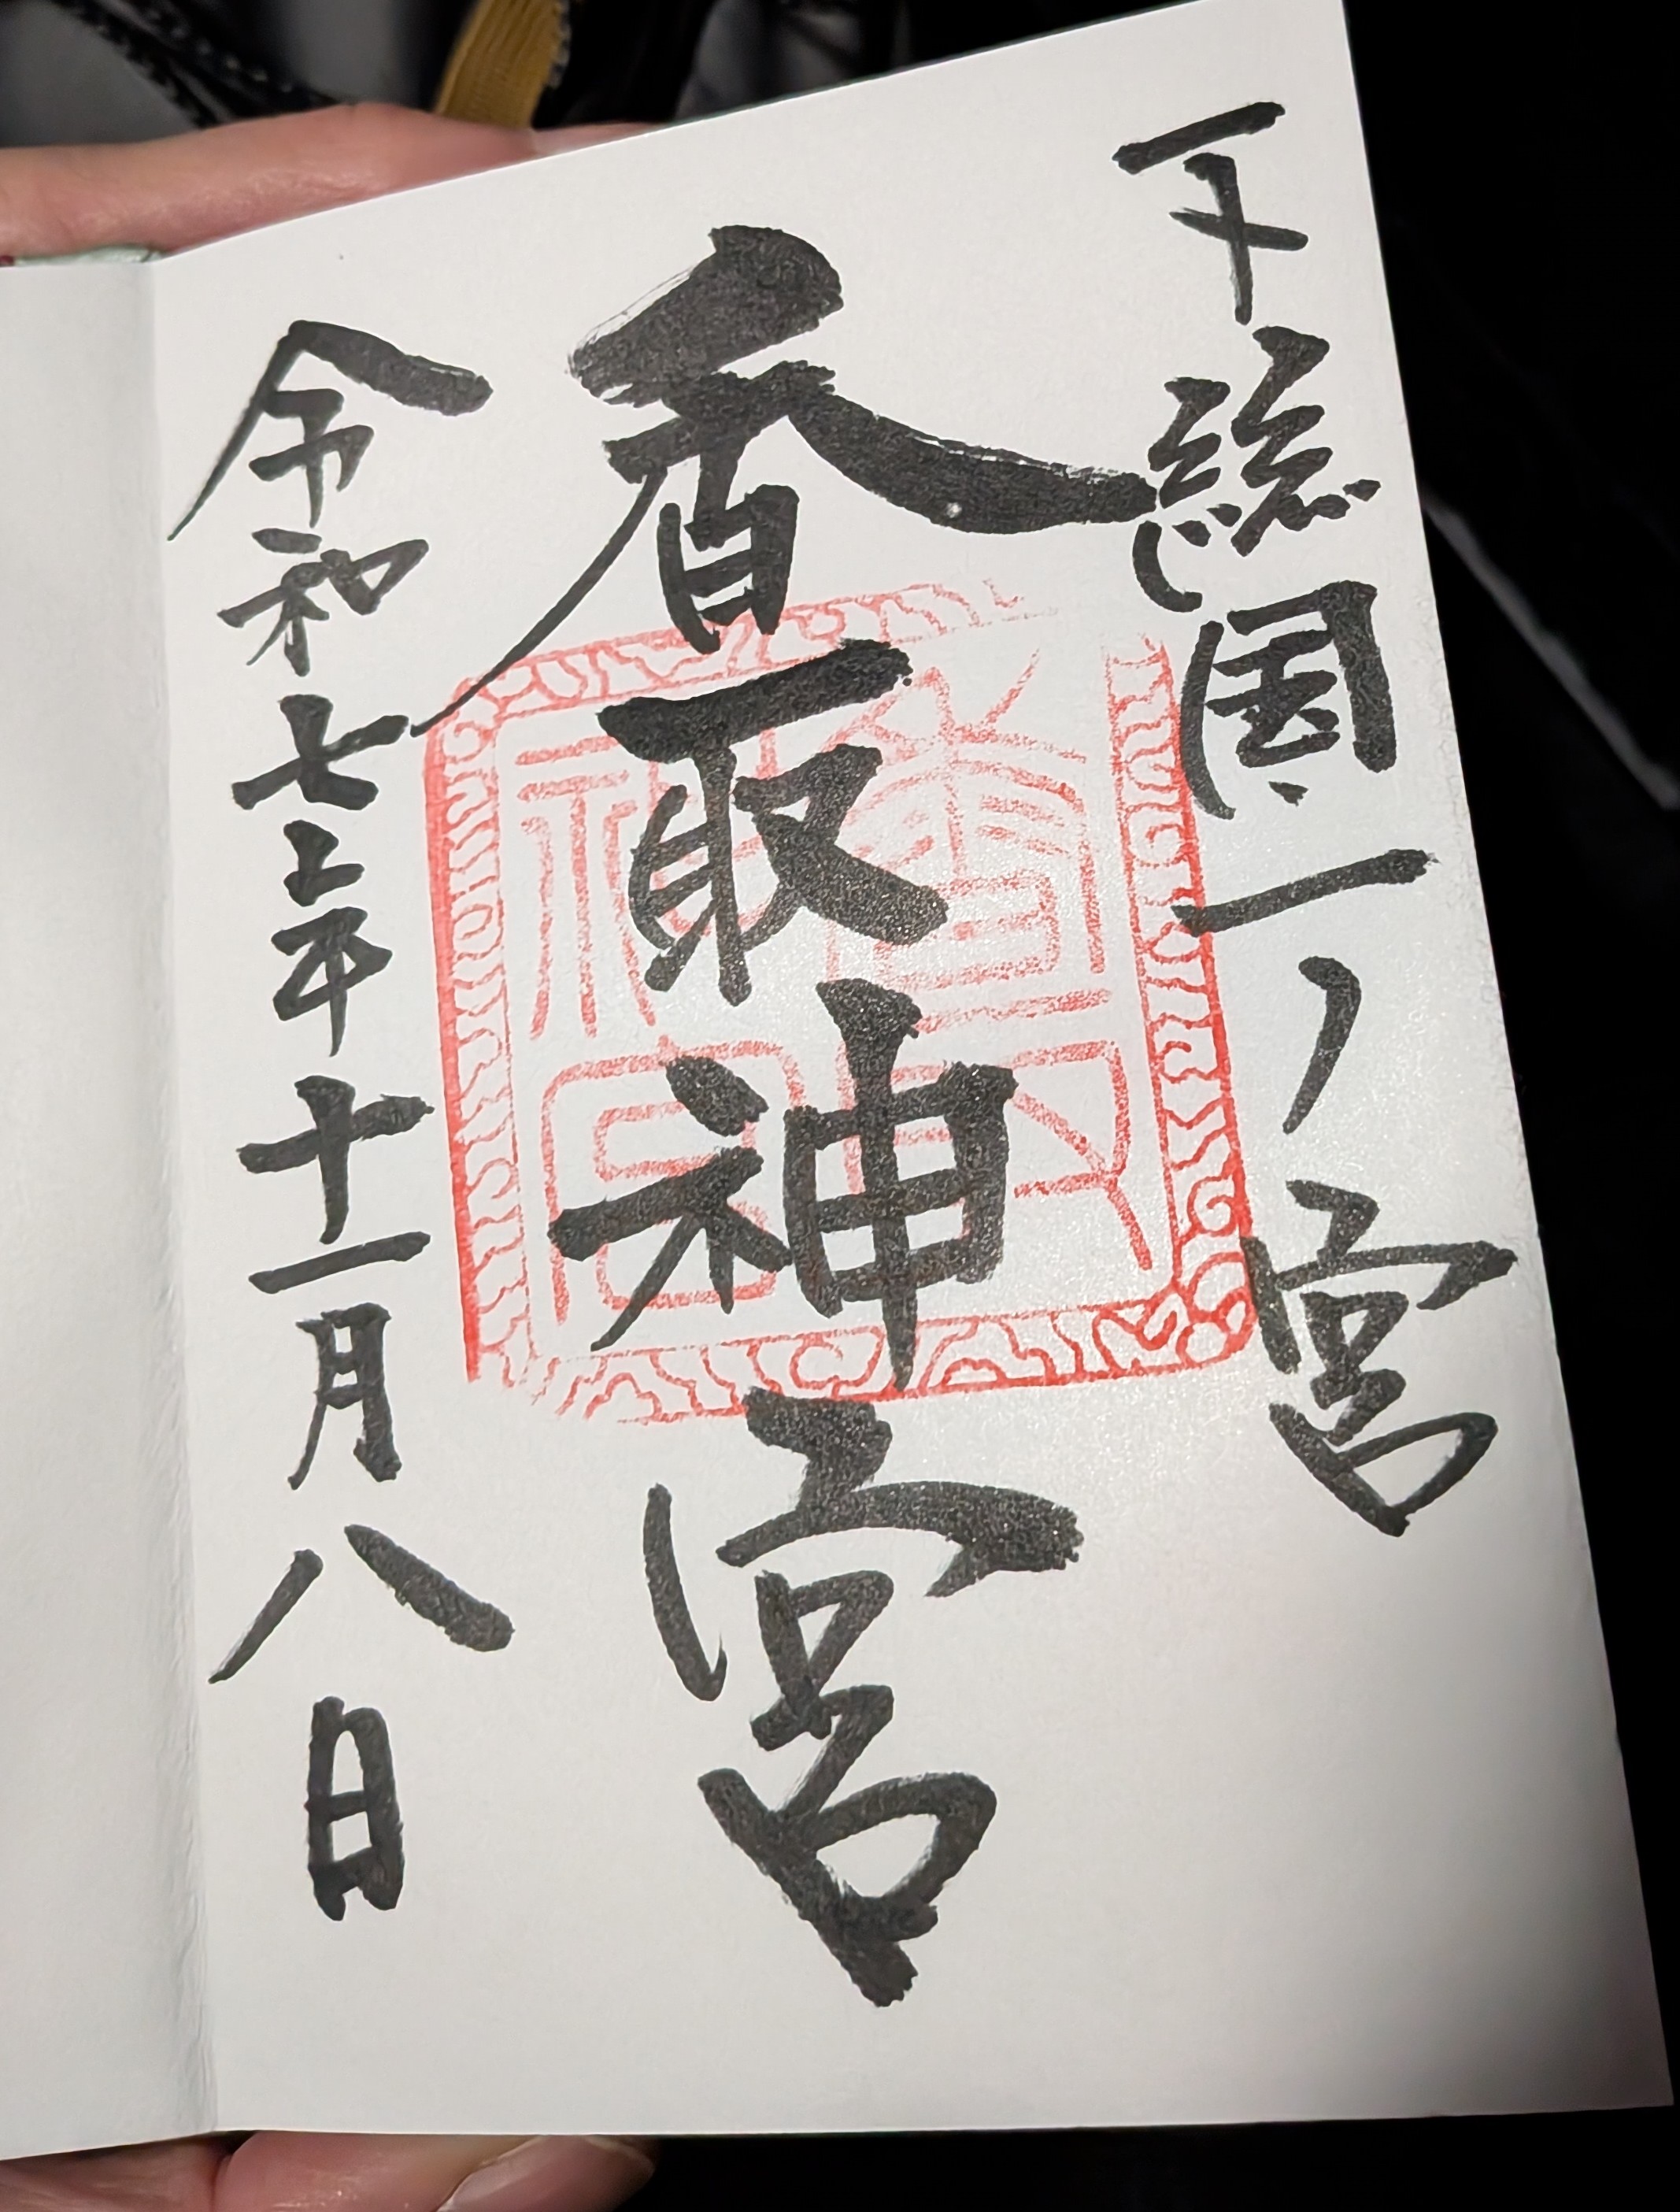 下総國一ノ宮
香取神宮
令和七年十一月八日
香取神宮